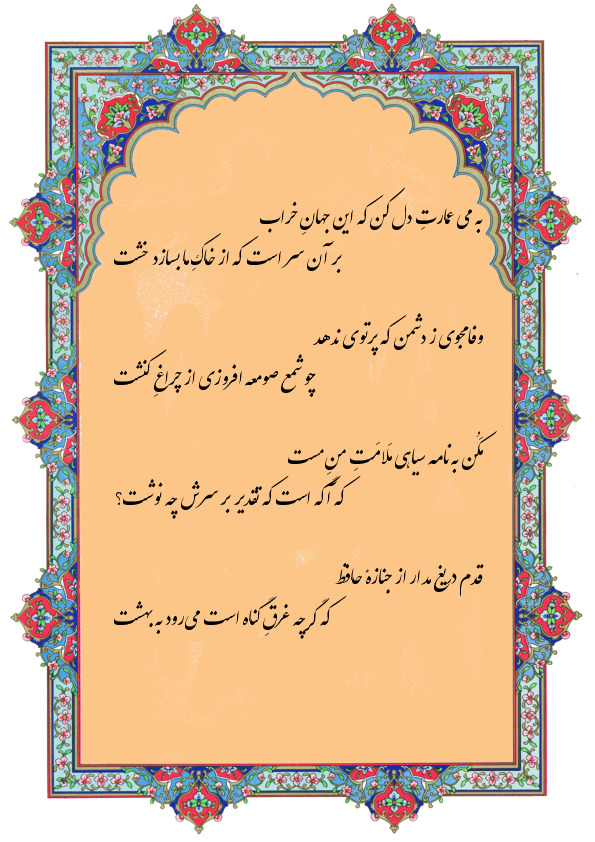 به می عمارتِ دل کن که این جهانِ خراب
بر آن سر است که از خاکِ ما بسازد خشت
وفا مجوی ز دشمن که پرتوی ندهد
چو شمعِ صومعه افروزی از چراغِ کنشت
مکُن به نامه سیاهی مَلامَتِ منِ مست
که آگه است که تقدیر بر سرش چه نوشت؟
قدم دریغ مدار از جنازهٔ حافظ
که گرچه غرقِ گناه است می‌رود به بهشت